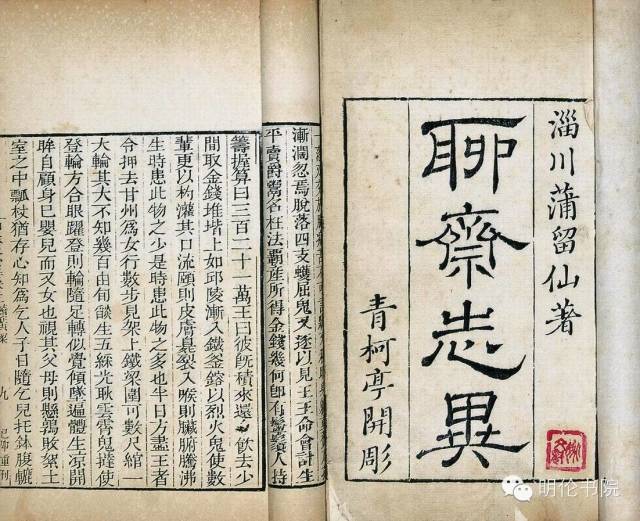 淄川蒲留仙著
聊齋志異
青柯亭開彫
忽焉脫落四支蠖屈鬼又逐以見王王命會計生
平賣爵鬻名枉法覇產所得金錢幾何即有人持
籌握算曰三百二十一萬王曰彼既積來還飲去少
間取金錢堆堦上如邱陵漸入鐵釜鎔以烈火鬼使數
輩更以杓灌其口流頤則皮膚臭裂入喉則臟腑騰沸
生時患此物之少是時患此物之多也半日方盡王者
令押去甘州爲女行數步見架上鐵梁圍可數尺綰一
大輪其大不知幾百由旬燄生五綵光耿雲霄鬼撻使
登輪方合眼躍登則輪隨足轉似覺傾墜遍體生涼開
眸自顧身已嬰兒而又女也視其父母則懸鶉敗絮土
室之中瓢杖猶存心知爲乞人子日隨乞兒托鉢腹轆
九
明伦书院